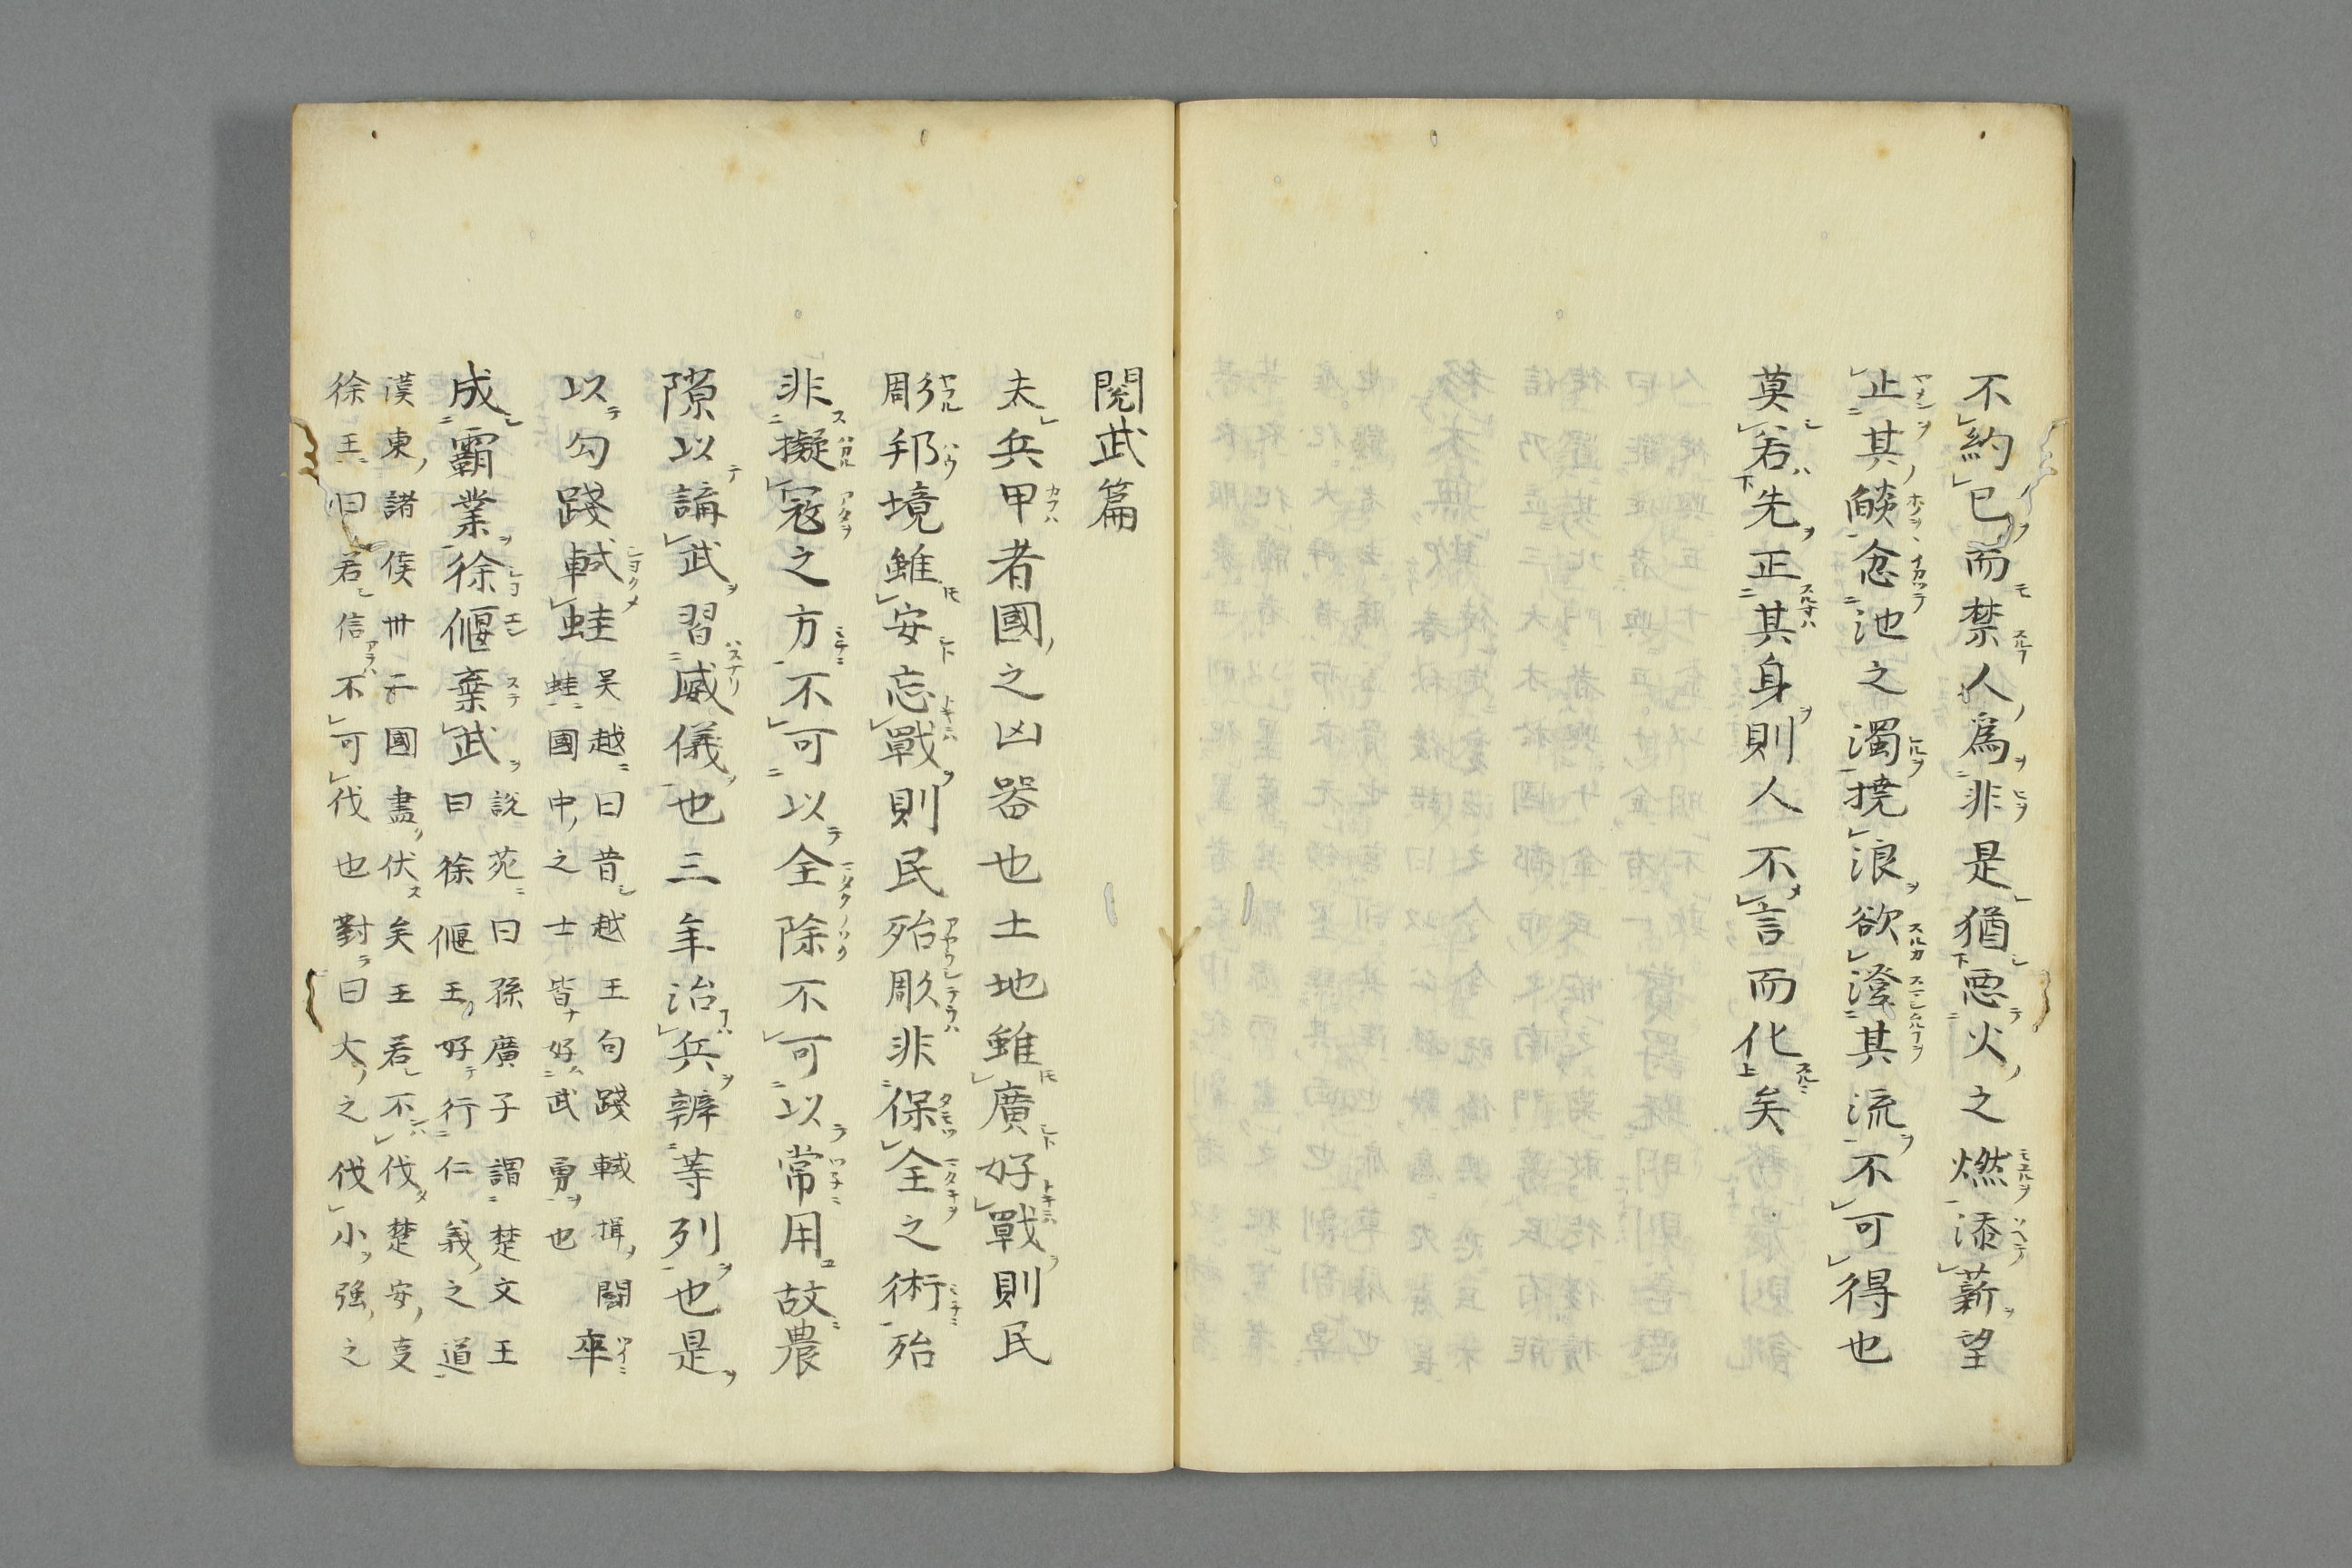 不約已而禁人爲非是猶惡火之燃添薪望
止其燄忿池之濁撓浪欲澄其流不可得也
莫若先正其身則人不言而化矣
閲武篇
夫兵甲者國之凶器也土地雖廣好戰則民
彫邦境雖安忘戰則民殆彫非保全之術殆
非擬寇之方不可以全除不可以常用故農
隙以講武習威儀也三年治兵辨等列也是
以勾踐軾蛙
吴越曰昔越王句踐軾揖闘
蛙國中之士皆好武勇也
卒
成覇業徐偃棄武
說苑曰孫廣子謂楚文王
曰徐偃王好行仁義之道
漢東諸侯卅二國盡伏矣王若不伐楚安叓
徐王曰若信不可伐也對曰大之伐小强之